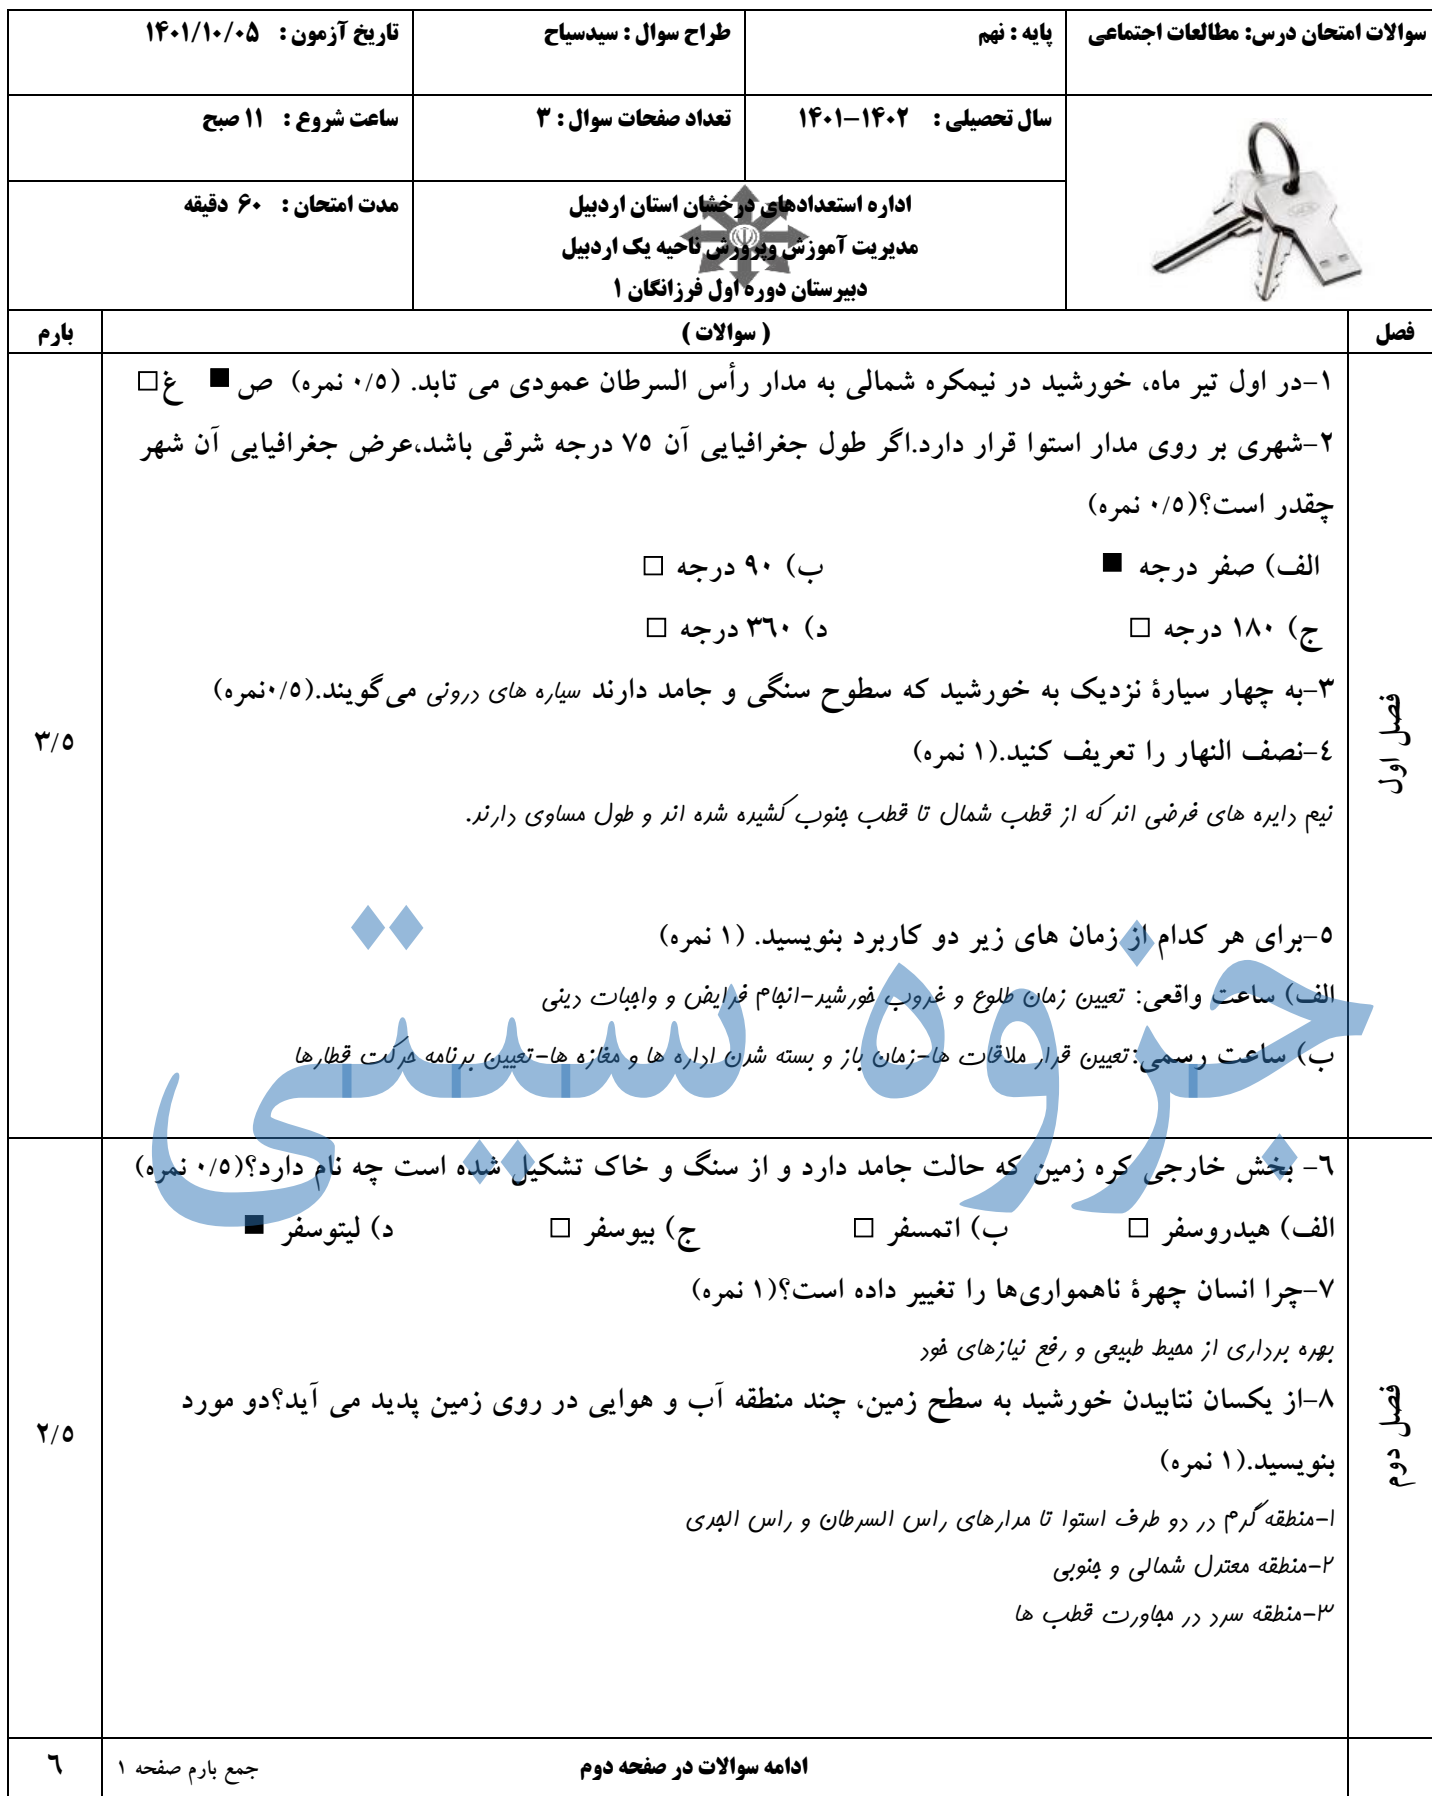 سوالات امتحان درس: مطالعات اجتماعی
پایه : نهم
طراح سوال : سیدسیاح
تاریخ آزمون : ۱۴۰۱/۱۰/۰۵
سال تحصیلی : ۱۴۰۲-۱۴۰۱
تعداد صفحات سوال : ۳
ساعت شروع : ۱۱ صبح
اداره استعدادهای درخشان استان اردبیل
مدیریت آموزش وپرورش ناحیه یک اردبیل
دبیرستان دوره اول فرزانگان ۱
مدت امتحان : ۶۰ دقیقه
فصل
( سوالات )
بارم
فصل اول
۱-در اول تیر ماه، خورشید در نیمکره شمالی به مدار رأس السرطان عمودی می تابد. (۰/۵ نمره) ص ■ غ □
۲-شهری بر روی مدار استوا قرار دارد.اگر طول جغرافیایی آن ۷۵ درجه شرقی باشد،عرض جغرافیایی آن شهر
چقدر است؟(۰/۵ نمره)
الف) صفر درجه ■ ب) ۹۰ درجه □
ج) ۱۸۰ درجه □ د) ۳۶۰ درجه □
۳-به چهار سیارۀ نزدیک به خورشید که سطوح سنگی و جامد دارند سیاره های درونی می‌گویند.(۰/۵نمره)
۴-نصف النهار را تعریف کنید.(۱ نمره)
نیم دایره های فرضی اند که از قطب شمال تا قطب جنوب کشیده شده اند و طول مساوی دارند.
۵-برای هر کدام از زمان های زیر دو کاربرد بنویسید. (۱ نمره)
الف) ساعت واقعی: تعیین زمان طلوع و غروب خورشید-انجام فرایض و واجبات دینی
ب) ساعت رسمی:تعیین قرار ملاقات ها-زمان باز و بسته شدن اداره ها و مغازه ها-تعیین برنامه حرکت قطارها
۳/۵
جزوه سیتی
فصل دوم
۶- بخش خارجی کره زمین که حالت جامد دارد و از سنگ و خاک تشکیل شده است چه نام دارد؟(۰/۵ نمره)
الف) هیدروسفر □ ب) اتمسفر □ ج) بیوسفر □ د) لیتوسفر ■
۷-چرا انسان چهرۀ ناهمواری‌ها را تغییر داده است؟(۱ نمره)
بهره برداری از محیط طبیعی و رفع نیازهای خود
۸-از یکسان نتابیدن خورشید به سطح زمین، چند منطقه آب و هوایی در روی زمین پدید می آید؟دو مورد
بنویسید.(۱ نمره)
۱-منطقه گرم در دو طرف استوا تا مدارهای راس السرطان و راس الجدی
۲-منطقه معتدل شمالی و جنوبی
۳-منطقه سرد در مجاورت قطب ها
۲/۵
ادامه سوالات در صفحه دوم
جمع بارم صفحه ۱
۶